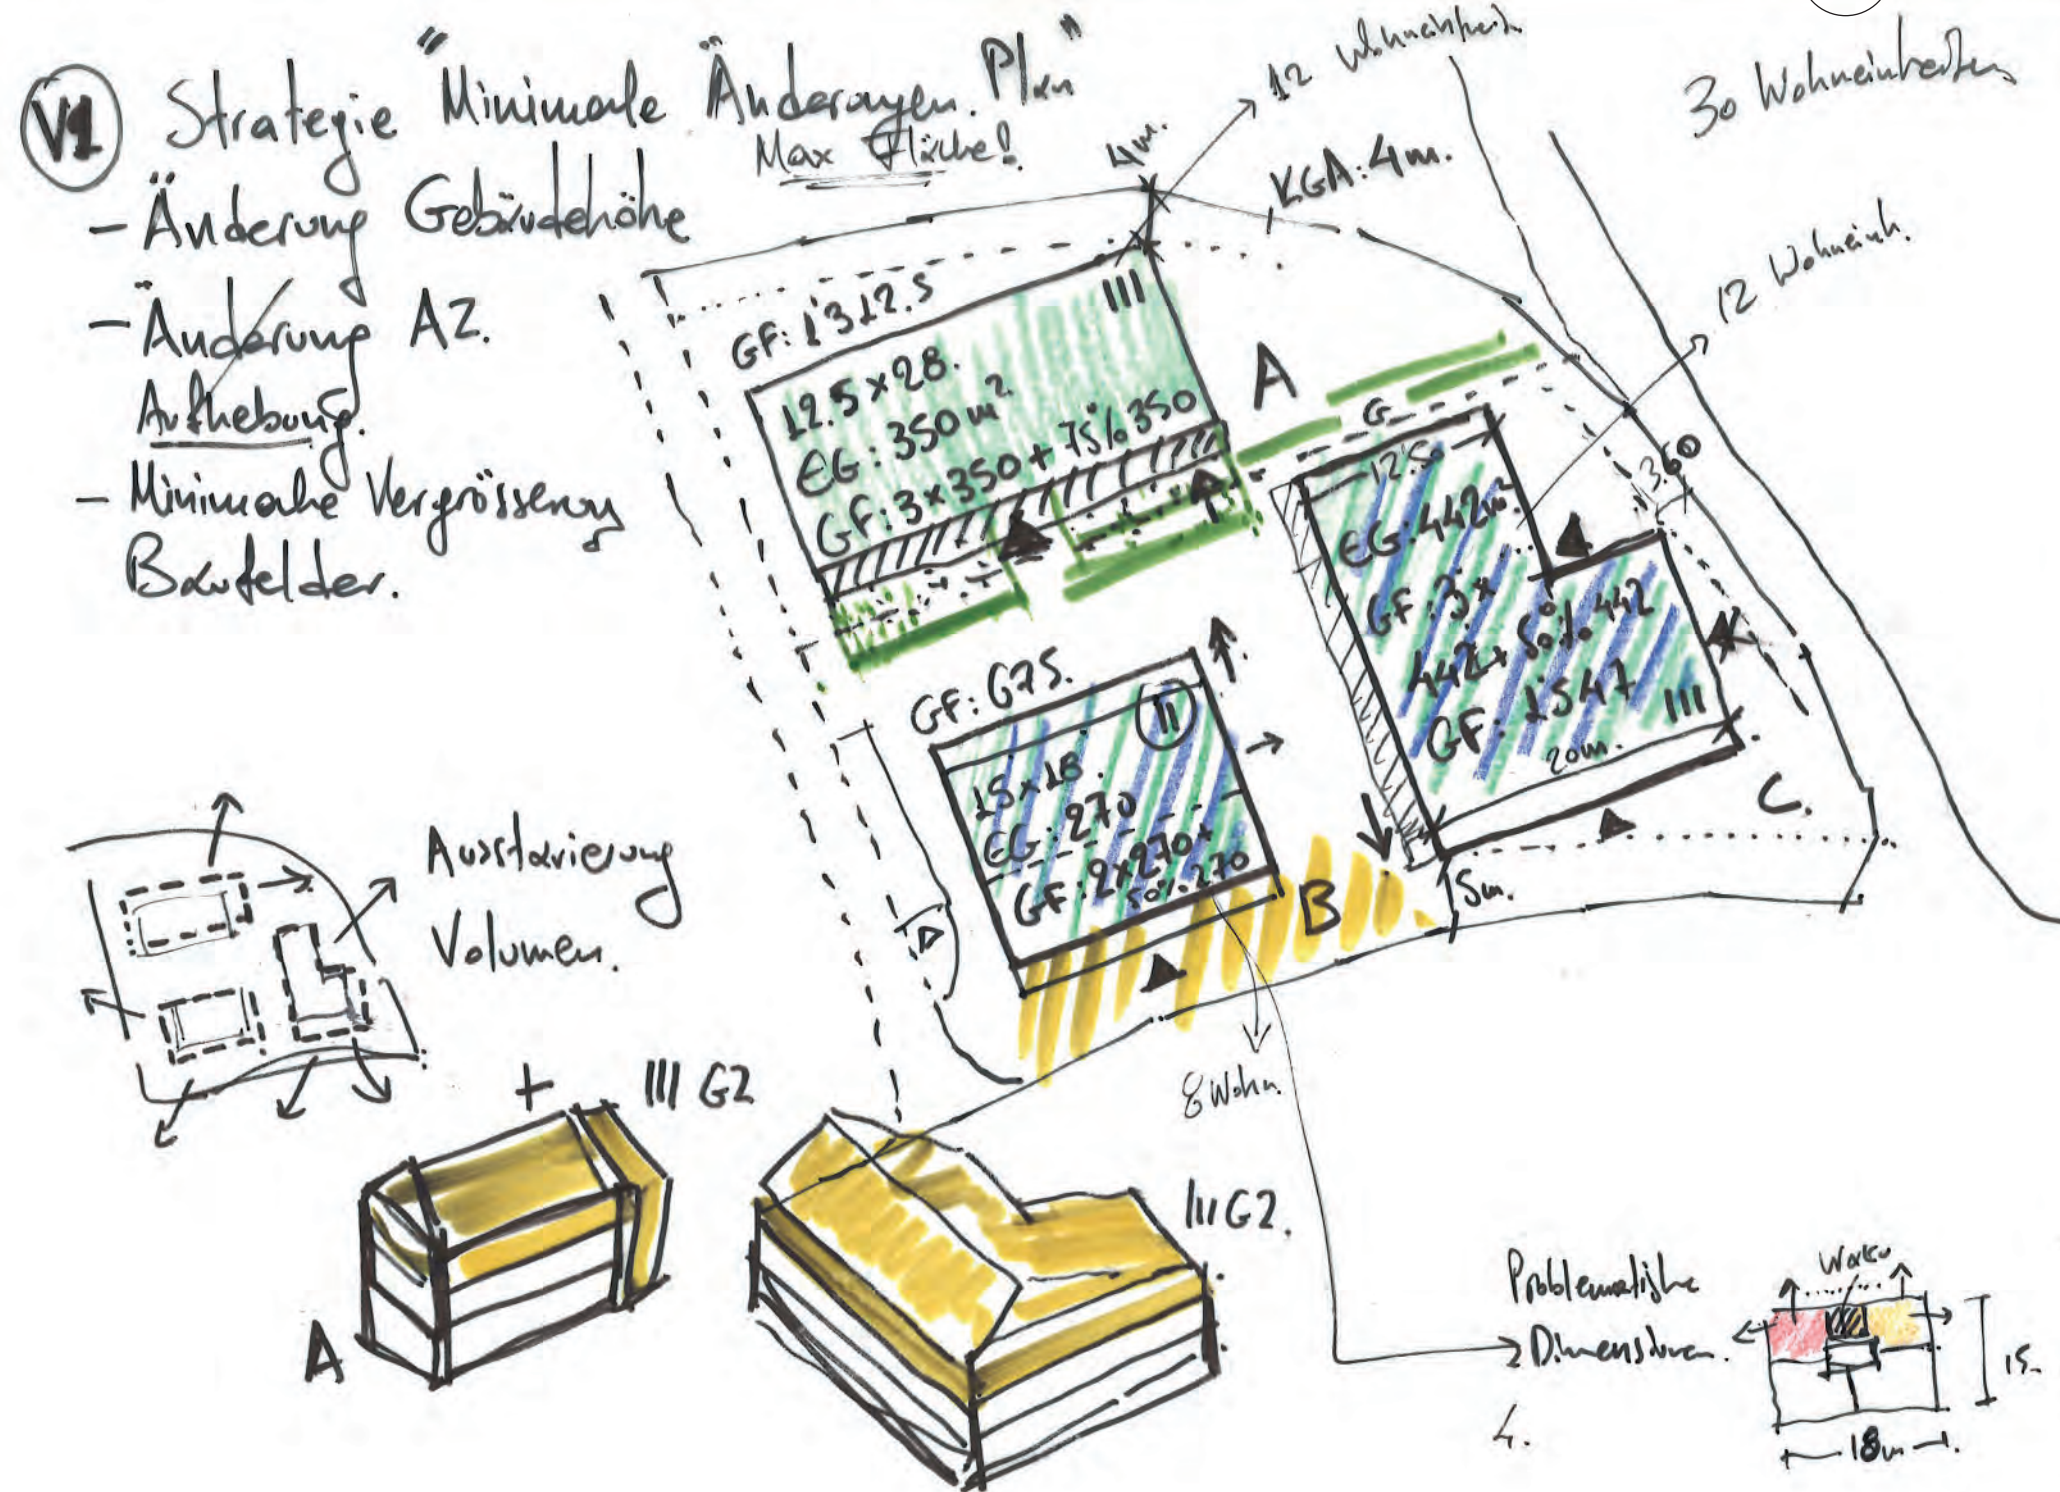 V1 Strategie "Minimale Änderungen Plan"
Max Fläche!
- Änderung Gebäudehöhe
- Änderung AZ.
Aufhebung.
- Minimale Vergrösserung
Baufelder.
4m.
12 Wohneinheit.
30 Wohneinheiten
KGA: 4m.
12 Wohneinh.
GF: 1'312.5
III
12.5 x 28.
EG: 350 m²
GF: 3 x 350 + 75% 350
A
G
12.50
3.60
EG: 442m²
GF: 3 x
442 + 50% 442
GF: 1'547
III
20m.
C.
GF: 675.
II
15 x 18.
EG: 270
GF: 2 x 270 +
50% 270
B
5m.
8 Wohn.
Austarierung
Volumen.
+ III G2
A
III G2.
Problematische
Dimensionen.
4.
15.
18m.